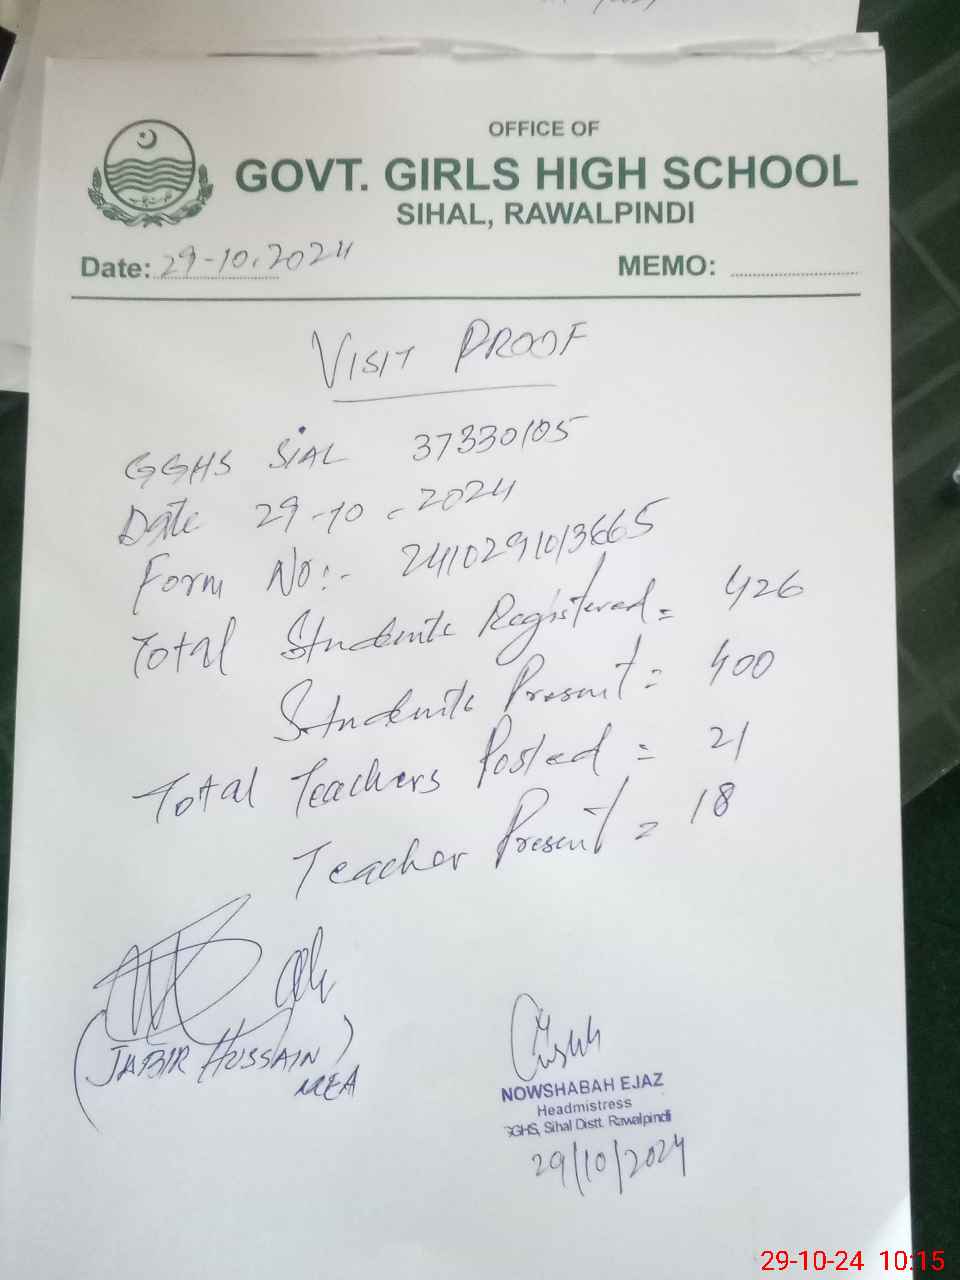 OFFICE OF
GOVT. GIRLS HIGH SCHOOL
SIHAL, RAWALPINDI
Date: 29-10.2024 MEMO:
VISIT PROOF
GGHS SIAL 37330105
Date 29-10-2024
Form No:- 2410291013665
Total Students Registered = 426
Students Present = 400
Total Teachers Posted = 21
Teacher Present = 18
(JABIR HUSSAIN)
MEA
NOWSHABAH EJAZ
Headmistress
GGHS, Sihal Distt. Rawalpindi
29/10/2024
29-10-24 10:15